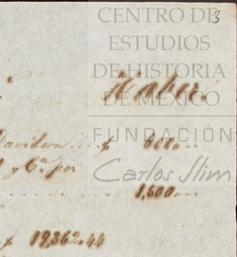 CENTRO DE
3
ESTUDIOS
DE HISTORIA
DE MÉXICO
Haber.
FUNDACIÓN
Davidson....$
y Ca. por
Carlos Slim
1,500...
$ 19,362.44